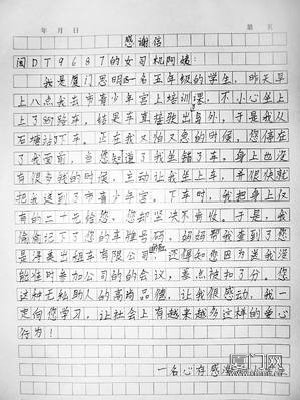 年 月 日 第 页
感谢信
闽DT9687的女司机阿姨:
我是厦门思明一名五年级的学生,昨天早
上八点我去市青少年宫上培训课,不小心坐上
上了 车,结果车直接 出岛外,于是我从
石塘站下车。正在我又怕又急的时候,您停在
了我面前,当您知道了我坐错了车,身上也没
有很多钱的时候,主动让我坐上车,并很快就
把我送到了市青少年宫。下车时,我把身上仅
有的二十元给您,您却坚决不肯收,于是,我
偷偷记下了您的车牌号码,妈妈帮我查到了您
是 出租车有限公司 ,还得知您因为送我没
能准时参加公司的会议,差点被扣了分,您
这种无私助人的高尚品德,让我很感动,我一
定向您学习,让社会上有越来越多这样的爱心
行为!
一名心存感
厦门网